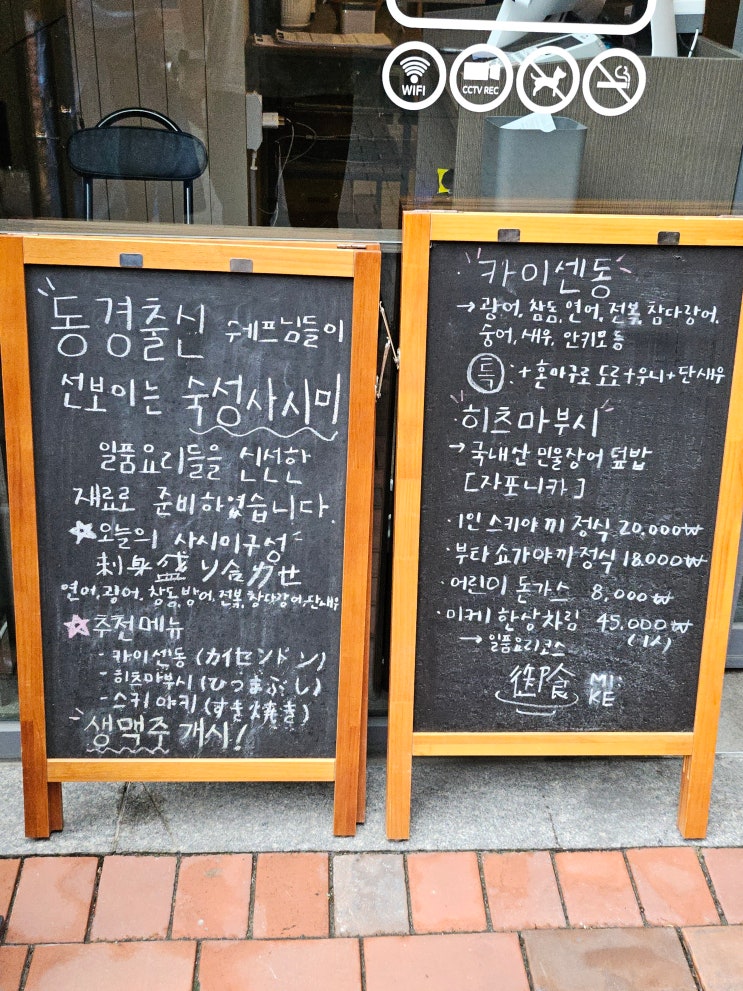 WIFI
CCTV REC
동경출신 쉐프님들이
선보이는 숙성사시미
일품요리들을 신선한
재료로 준비하였습니다.
☆오늘의 사시미구성
刺身盛り合わせ
연어, 광어, 참돔, 방어, 전복, 참다랑어, 단새우
☆추천메뉴
- 카이센동 (カイセンドン)
- 히츠마부시 (ひつまぶし)
- 스키야키 (すき焼き)
생맥주 개시!
카이센동
→ 광어, 참돔, 연어, 전복, 참다랑어,
숭어, 새우, 안키모 등
특 : + 혼마구로 도로 + 우니 + 단새우
히츠마부시
→ 국내산 민물장어 덮밥
[자포니카]
· 1인 스키야끼 정식 20,000₩
· 부타쇼가야끼 정식 18,000₩
· 어린이 돈가스 8,000₩
· 미케 한상차림 45,000₩
→ 일품요리코스 (1人)
御食 MI
KE